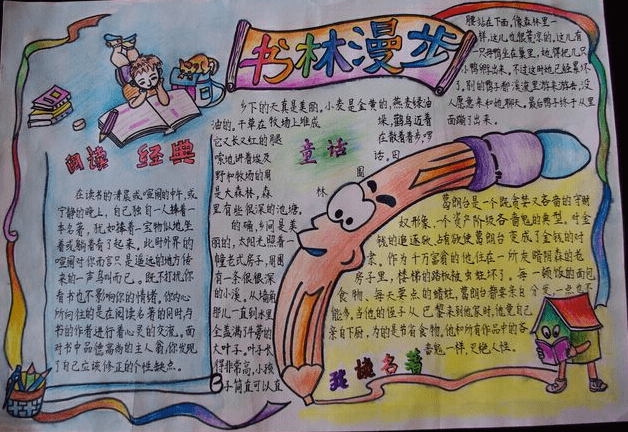 书林漫步
阅读 经典
在读书的清晨或喧闹的中午，或
宁静的晚上，自己独自一人捧着一
本名著，犹如捧着一宝物似地，坐
着或躺着看了起来，此时外界的
喧闹对你而言只是遥远的地方传
来的一声鸟叫而已。既不打扰你
看书也不影响你的情绪，你内心
所向往的是在阅读名著的同时与
书的作者进行着心灵的交流，面
对书中品德高尚的主人翁，你发现
了自己应该修正的个性缺点。
童话
乡下的天真是美丽。小麦是金黄的，燕麦绿油
油的。干草在牧场上堆成
垛，鹳鸟迈着
它又长又红的腿
在散着步，啰
嗦地讲着埃及
话。田
野和牧场的周
围
是大森林，森
林
里有些很深的池塘。
的确，乡间是美
丽的，太阳光照着一
幢老式房子，周围
有一条很深
的小溪，从墙角
那儿一直到水里
全盖满了牛蒡的
大叶子。叶子长
得非常高，小孩
子简直可以直
腰站在下面，像森林里一
样，这儿也很荒凉的。这儿有
一只母鸭坐在巢里，她得把几只
小鸭孵出来，不过这时她已经累坏
了。别的鸭子都在溪流里游来游去，没
人愿意来和她聊天。最后鸭子终于从里
面蹦了出来。
葛朗台是一个既贪婪又吝啬的守财
奴形象，一个资产阶级吝啬鬼的典型，对金
钱的追逐欲，占有欲使葛朗台变成了金钱的对
象，作为千万富翁的他，住在一所灰暗阴森的老
房子里，楼梯的踏板被虫蛀坏了，每一顿饭的面包
食物，每天要点的蜡烛，葛朗台都要亲自分发一点也不
能多，当他的侄子从巴黎来到他家时，他竟自己
亲自下厨，为的是节省食物，他和所有作品中的吝
啬鬼一样，灭绝人性。
我读名著